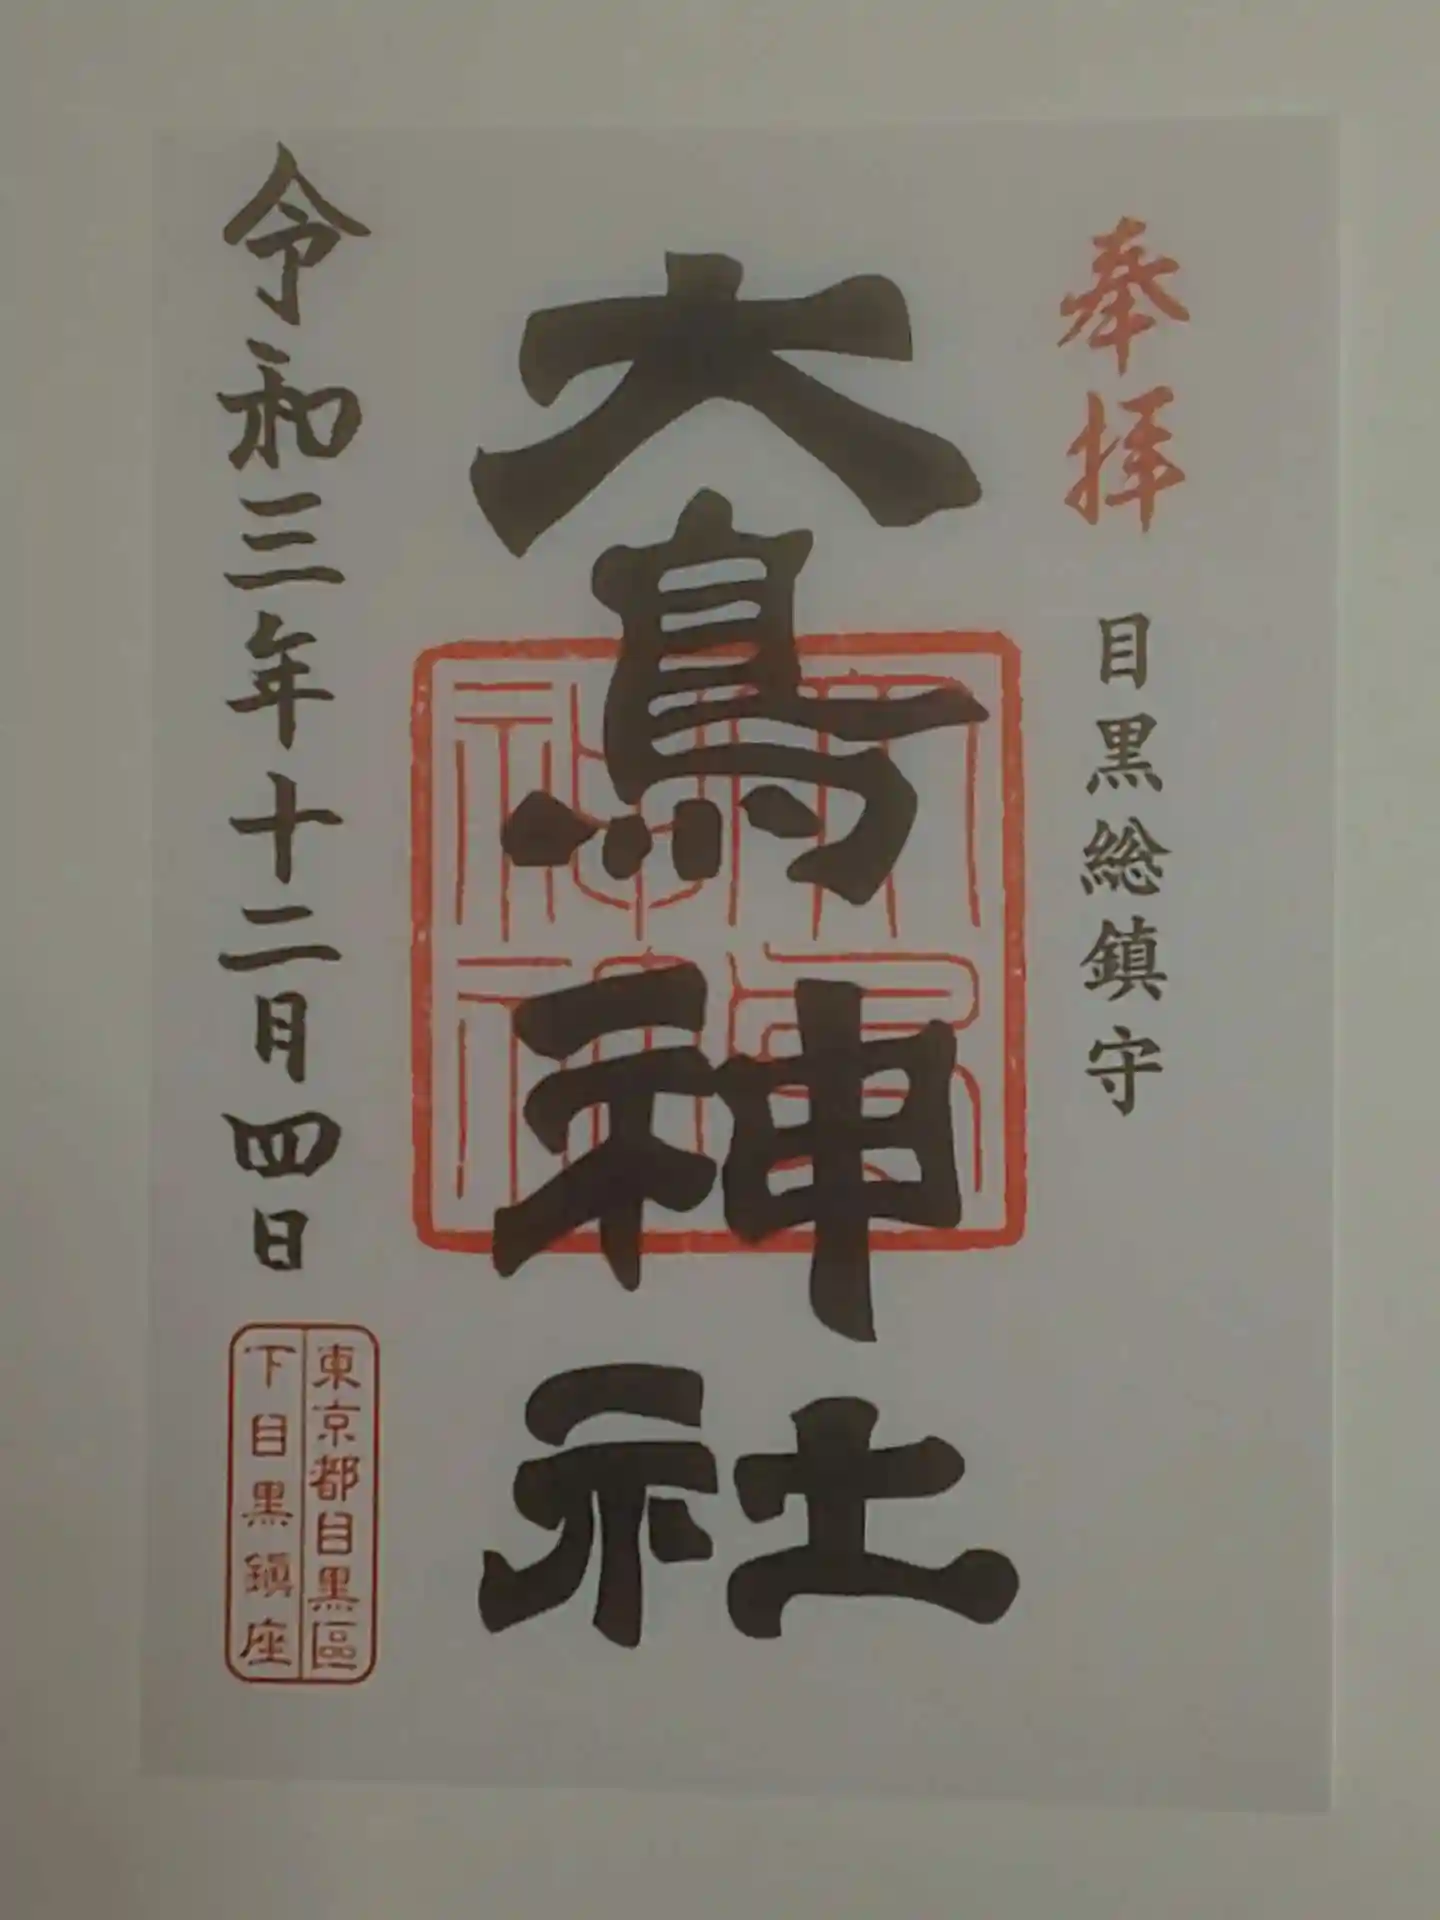 奉拝
目黒総鎮守
大鳥神社
令和三年十二月四日
東京都目黒區
下目黒鎭座